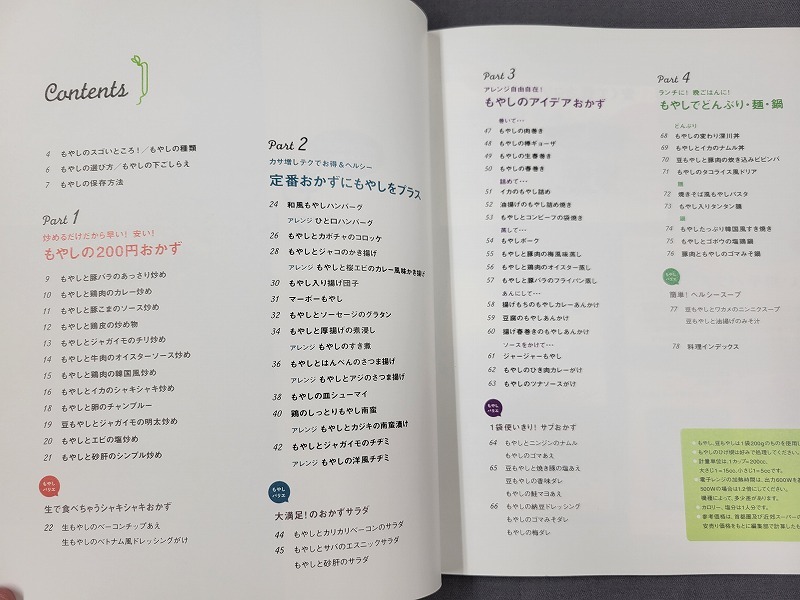 Contents
4 もやしのスゴいところ!／もやしの種類
6 もやしの選び方／もやしの下ごしらえ
7 もやしの保存方法
Part 1
炒めるだけだから早い! 安い!
もやしの200円おかず
9 もやしと豚バラのあっさり炒め
10 もやしと鶏肉のカレー炒め
11 もやしと豚こまのソース炒め
12 もやしと鶏皮の炒め物
13 もやしとジャガイモのチリ炒め
14 もやしと牛肉のオイスターソース炒め
15 もやしと鶏肉の韓国風炒め
16 もやしとイカのシャキシャキ炒め
18 もやしと卵のチャンプルー
19 豆もやしとジャガイモの明太炒め
20 もやしとエビの塩炒め
21 もやしと砂肝のシンプル炒め
もやし
バリエ
生で食べちゃうシャキシャキおかず
22 生もやしのベーコンチップあえ
生もやしのベトナム風ドレッシングがけ
Part 2
カサ増しテクでお得&ヘルシー
定番おかずにもやしをプラス
24 和風もやしハンバーグ
アレンジ ひと口ハンバーグ
26 もやしとカボチャのコロッケ
28 もやしとジャコのかき揚げ
アレンジ もやしと桜エビのカレー風味かき揚げ
30 もやし入り揚げ団子
31 マーボーもやし
32 もやしとソーセージのグラタン
34 もやしと厚揚げの煮浸し
アレンジ もやしのすき煮
36 もやしとはんぺんのさつま揚げ
アレンジ もやしとアジのさつま揚げ
38 もやしの皿シューマイ
40 鶏のしっとりもやし南蛮
アレンジ もやしとカジキの南蛮漬け
42 もやしとジャガイモのチヂミ
アレンジ もやしの洋風チヂミ
もやし
バリエ
大満足!のおかずサラダ
44 もやしとカリカリベーコンのサラダ
45 もやしとサバのエスニックサラダ
もやしと砂肝のサラダ
Part 3
アレンジ自由自在!
もやしのアイデアおかず
巻いて…
47 もやしの肉巻き
48 もやしの棒ギョーザ
49 もやしの生春巻き
50 もやしの春巻き
詰めて…
51 イカのもやし詰め
52 油揚げのもやし詰め焼き
53 もやしとコンビーフの袋焼き
蒸して…
54 もやしポーク
55 もやしと豚肉の梅風味蒸し
56 もやしと鶏肉のオイスター蒸し
57 もやしと豚バラのフライパン蒸し
あんにして…
58 揚げもちのもやしカレーあんかけ
59 豆腐のもやしあんかけ
60 揚げ春巻きのもやしあんかけ
ソースをかけて…
61 ジャージャーもやし
62 もやしのひき肉カレーがけ
63 もやしのツナソースがけ
もやし
バリエ
1袋使いきり! サブおかず
64 もやしとニンジンのナムル
もやしのゴマあえ
65 豆もやしと焼き豚の塩あえ
豆もやしの香味ダレ
もやしの鮭マヨあえ
66 もやしの納豆ドレッシング
もやしのゴマみそダレ
もやしの梅ダレ
Part 4
ランチに! 晩ごはんに!
もやしでどんぶり・麺・鍋
どんぶり
68 もやしの変わり深川丼
69 もやしとイカのナムル丼
70 豆もやしと豚肉の炊き込みビビンバ
71 もやしのタコライス風ドリア
麺
72 焼きそば風もやしパスタ
73 もやし入りタンタン麺
鍋
74 もやしたっぷり韓国風すき焼き
75 もやしとゴボウの塩鶏鍋
76 豚肉ともやしのゴマみそ鍋
もやし
バリエ
簡単! ヘルシースープ
77 豆もやしとワカメのニンニクスープ
豆もやしと油揚げのみそ汁
78 料理インデックス
もやし、豆もやしは1袋200gのものを使用し
もやしのひげ根は好みで処理してください。
計量単位は、1カップ=200cc、
大さじ1=15cc、小さじ1=5ccです。
電子レンジの加熱時間は、出力600Wを基
500Wの場合は1.2倍にしてください。
機種によって、多少差があります。
カロリー、塩分は1人分です。
参考価格は、首都圏及び近郊スーパーの
安売り価格をもとに編集部で計算したも